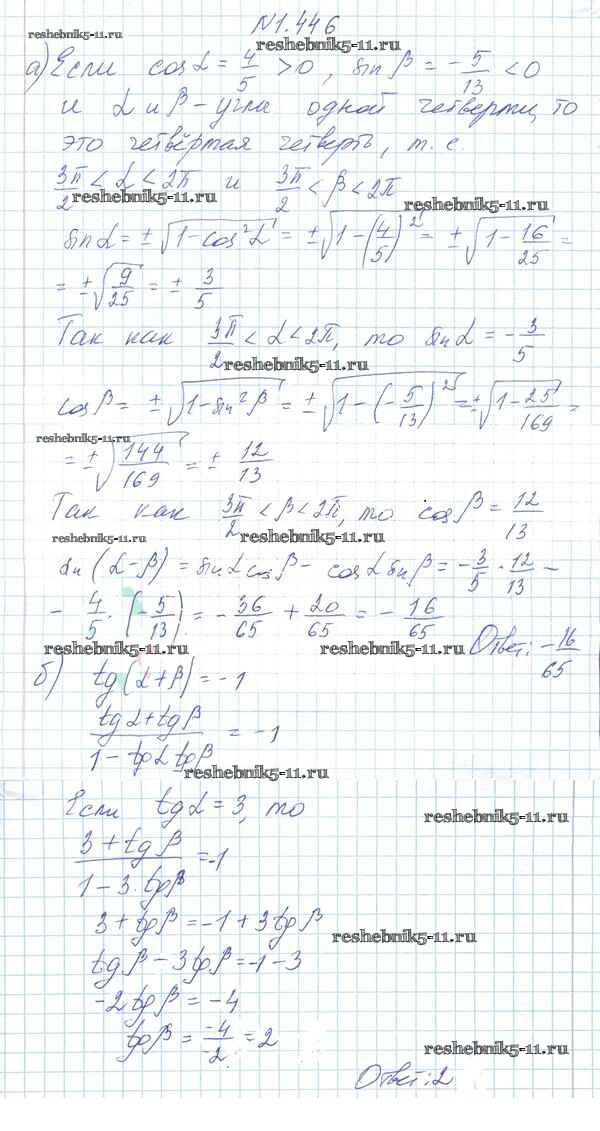 N1.446
reshebnik5-11.ru
reshebnik5-11.ru
а) Если cosα = 4/5 > 0, sinβ = -5/13 < 0
и α и β - углы одной четверти, то
это четвёртая четверть, т. е.
3π/2 < α < 2π и 3π/2 < β < 2π
reshebnik5-11.ru reshebnik5-11.ru
sinα = ±√(1-cos²α) = ±√(1-(4/5)²) = ±√(1-16/25) =
= ±√(9/25) = ± 3/5
Так как 3π/2 < α < 2π, то sinα = -3/5
reshebnik5-11.ru
cosβ = ±√(1-sin²β) = ±√(1-(-5/13)²) = ±√(1-25/169) =
reshebnik5-11.ru
= ±√(144/169) = ± 12/13
Так как 3π/2 < β < 2π, то cosβ = 12/13
reshebnik5-11.ru reshebnik5-11.ru
sin(α-β) = sinα cosβ - cosα sinβ = -3/5 · 12/13 -
- 4/5 · (-5/13) = -36/65 + 20/65 = -16/65
reshebnik5-11.ru reshebnik5-11.ru
Ответ: -16/65
б) tg(α+β) = -1
(tgα+tgβ)/(1-tgα tgβ) = -1
reshebnik5-11.ru
Если tgα = 3, то
reshebnik5-11.ru
(3+tgβ)/(1-3·tgβ) = -1
3+tgβ = -1+3tgβ
reshebnik5-11.ru
tgβ-3tgβ = -1-3
-2tgβ = -4
tgβ = -4/-2 = 2
reshebnik5-11.ru
Ответ: 2